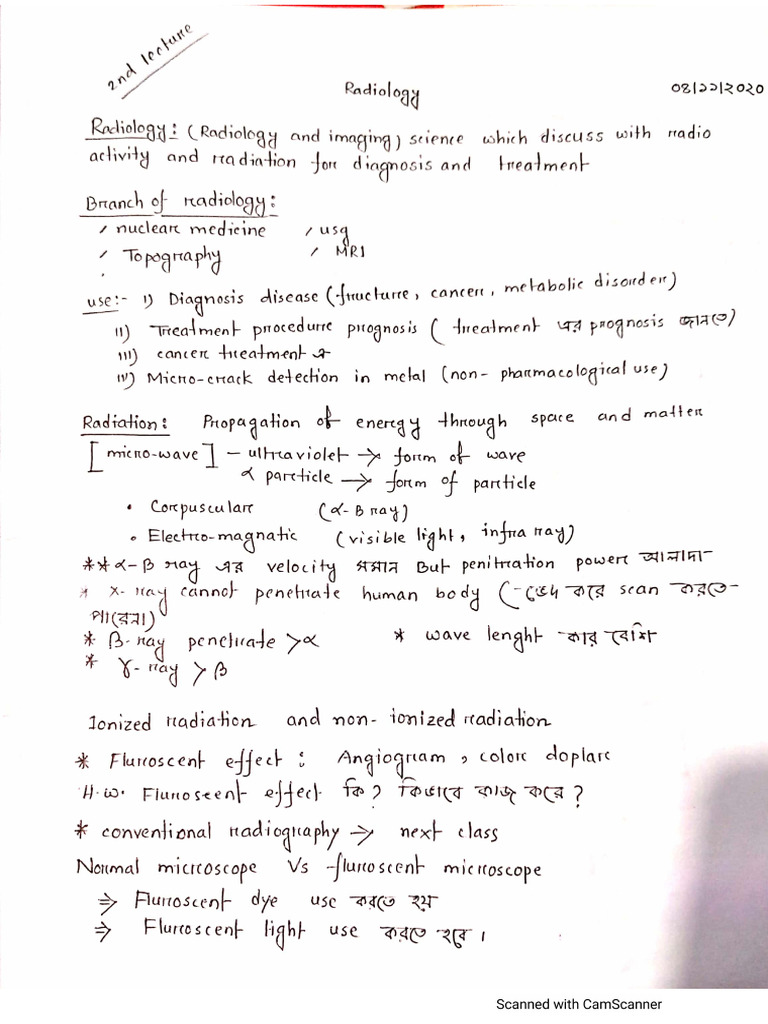 2nd lecture
Radiology
০৪/১১/২০২০
Radiology: (Radiology and imaging) science which discuss with radio
activity and radiation for diagnosis and treatment
Branch of radiology:
/ nuclear medicine / usg
/ Topography / MRI
use:- i) Diagnosis disease (fructure, cancer, metabolic disorder)
ii) Treatment procedure prognosis ( treatment এর prognosis জানতে)
iii) cancer treatment এ
iv) Micro-crack detection in metal (non- pharmacological use)
Radiation: Propagation of energy through space and matter
[micro-wave] – ultraviolet → form of wave
α particle → form of particle
• Corpuscular (α-B ray)
• Electro-magnatic (visible light, infra ray)
** α-β ray এর velocity সমান But penitration power আলাদা
* x-ray cannot penetrate human body (ভেদ করে scan করতে
পারেনা)
* β-ray penetrate > α * wave lenght কার বেশি
* γ-ray > β
Ionized radiation and non-ionized radiation
* Fluroscent effect : Angiogram, color doplar
H.W. Fluroscent effect কি? কিভাবে কাজ করে?
* conventional radiography → next class
Normal microscope Vs fluroscent microscope
⇒ Fluroscent dye use করতে হয়
⇒ Fluroscent light use করতে হবে।
Scanned with CamScanner